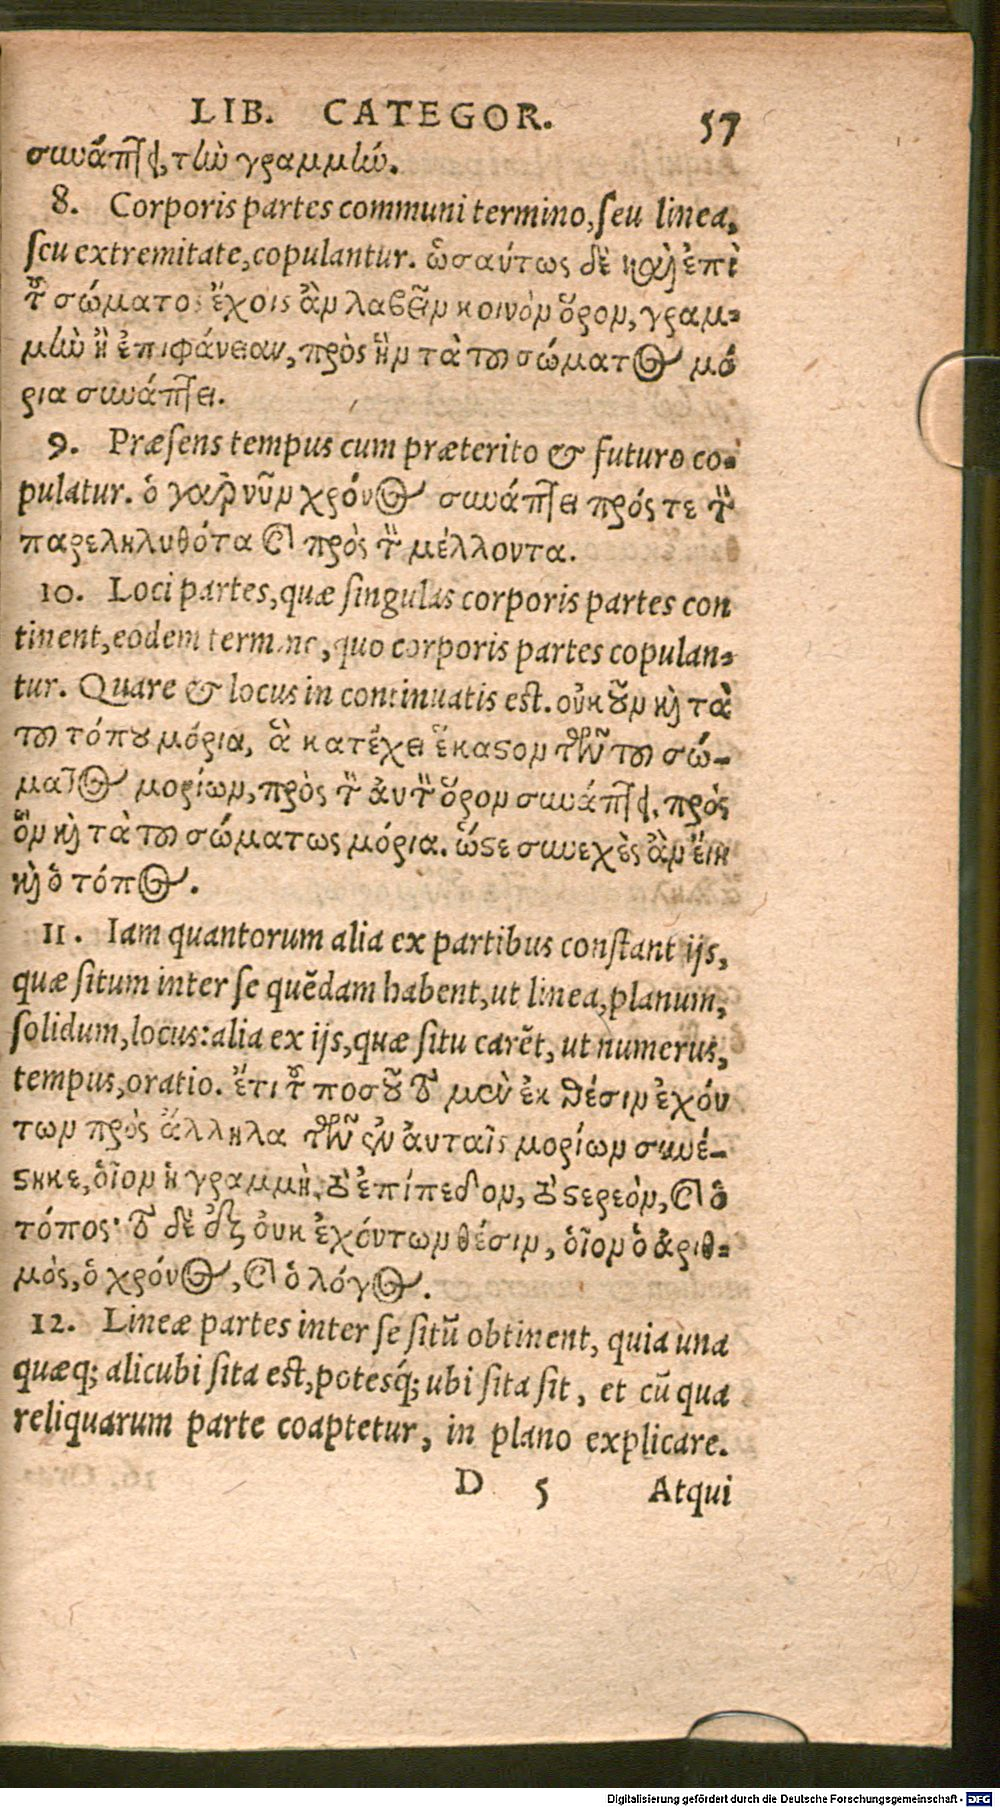 LIB. CATEGOR. 57
συνάπτει, τὴν γραμμήν.
8. Corporis partes communi termino, ſeu linea,
ſeu extremitate, copulantur. ὡσαύτως δὲ καὶ ἐπὶ
τοῦ σώματος ἔχοις ἂν λαβεῖν κοινὸν ὅρον, γραμ-
μὴν ἢ ἐπιφάνειαν, πρὸς ἣν τὰ τοῦ σώματος μό
ρια συνάπτει.
9. Præſens tempus cum præterito & futuro co-
pulatur. ὁ γὰρ νῦν χρόνος συνάπτει πρός τε τὸν
παρεληλυθότα καὶ πρὸς τὸν μέλλοντα.
10. Loci partes, quæ ſingulas corporis partes con
tinent, eodem termino, quo corporis partes copulan-
tur. Quare & locus in continuatis est. οὐκοῦν καὶ τὰ
τοῦ τόπου μόρια, ἃ κατέχει ἕκαστον τῶν τοῦ σώ-
ματος μορίων, πρὸς τὸν αὐτὸν ὅρον συνάπτει, πρὸς
ὃν καὶ τὰ τοῦ σώματως μόρια. ὥστε συνεχὲς ἂν εἴη
καὶ ὁ τόπος.
11. Iam quantorum alia ex partibus constant ijs,
quæ ſitum inter ſe quẽdam habent, ut linea, planum,
ſolidum, locus: alia ex ijs, quæ ſitu carẽt, ut numerus,
tempus, oratio. ἔτι τοῦ ποσοῦ τὸ μὲν ἐκ θέσιν ἐχόν
των πρὸς ἄλληλα τῶν ἐν αὐταῖς μορίων συνέ-
στηκε, ὁῖον ἡ γραμμὴ, τὸ ἐπίπεδον, τὸ στερεὸν, καὶ ὁ
τόπος· τὸ δὲ ἐξ οὐκ ἐχόντων θέσιν, ὁῖον ὁ ἀριθ-
μὸς, ὁ χρόνος, καὶ ὁ λόγος.
12. Lineæ partes inter ſe ſitũ obtinent, quia una
quæq; alicubi ſita est, potesq́; ubi ſita ſit, et cũ qua
reliquarum parte coaptetur, in plano explicare.
D 5 Atqui
Digitalisierung gefördert durch die Deutsche Forschungsgemeinschaft - DFG